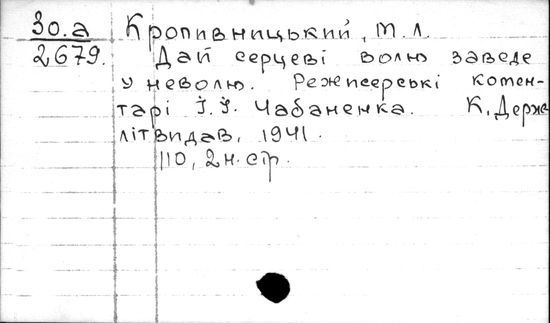 30.а
2679.
Кропивницький, М.Л.
Дай серцеві волю заведе
у неволю. Режисерські комен-
тарі І.І. Чабаненка. К., Держ-
літвидав, 1941.
110, 2 н. стр.